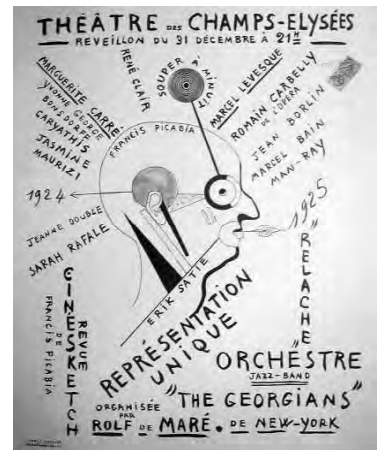 THÉÂTRE DES CHAMPS-ELYSÉES
REVEILLON DU 31 DÉCEMBRE À 21H
MARGUERITE CARRÉ
YVONNE GEORGE
BONSDORFF
CARYATHIS
JASMINE
MAURIZI
RENÉ CLAIR
SOUPER À MINUIT
MARCEL LEVESQUE
ROMAIN CARBELLY
DE L'OPÉRA
JEAN BORLIN
MARCEL BAIN
MAN-RAY
FRANCIS PICABIA
1924
1925
JEANNE DOUBLE
SARAH RAFALE
ERIK SATIE
"RELACHE"
CINÉSKETCH
REVUE
DE
FRANCIS PICABIA
REPRÉSENTATION
UNIQUE
ORCHESTRE
JAZZ-BAND
"THE GEORGIANS"
DE NEW-YORK
ORGANISÉE
PAR
ROLF DE MARÉ.